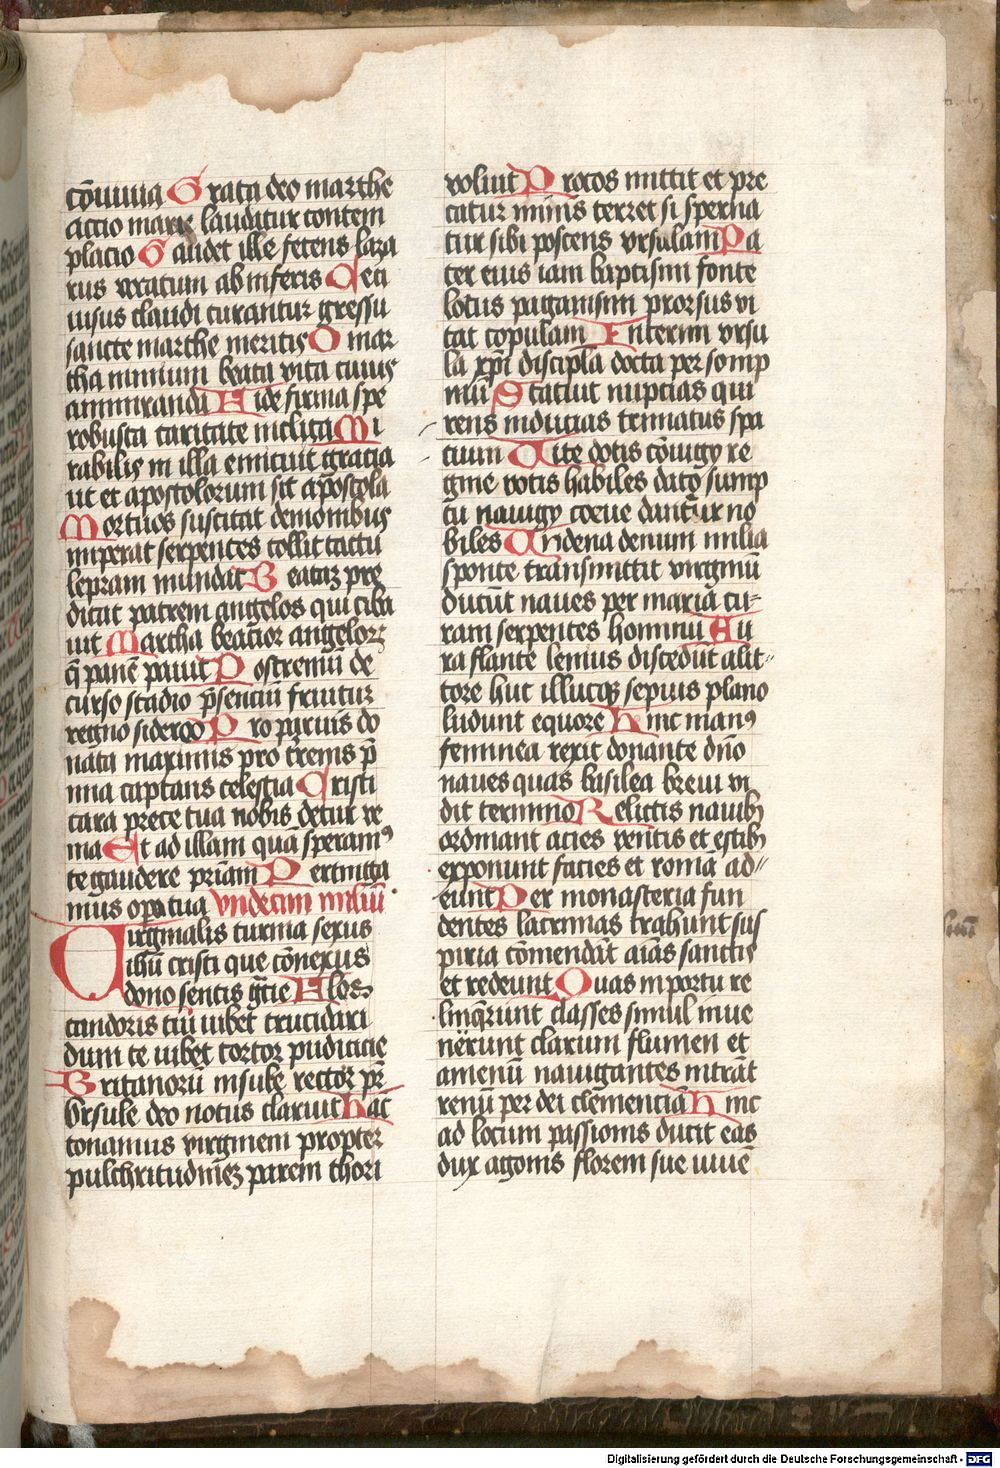 cōuiuia Grata deo marthe
accio marie lauditur contem
placio Gaudet ille fetens laza
rus vocatum ab inferis Ceci
uisus claudi curantur gressu
sancte marthe meritis O mar
tha nimium beata vita cuius
ammiranda Fide firma spe
robusta caritate inclita Mi
rabilis in illa emicuit gracia
ut et apostolorum sit apostola
Mortuos suscitat demonibus
imperat serpentes tollit tactu
lepram mundat Beataꝫ pre
dicat patrem angelos qui ciba
uit Martha beacior angeloꝝ
q̄ panē pauit Postremū de
curso stadio p̄senciū fruitur
regno sidereo Pro paruis do
nata maximis pro terrenis p̄
mia captans celestia Cristi
cara prece tua nobis detur ve
nia Et ad illam quā speramꝰ
te gaudere pr̄iam Pertinga
mus op̄e tua Vndecim miliū
Virginalis turma sexus
ihū cristi que cōnexus
dono sentis gr̄cie Flos
candoris tui iubet trucidari
dum te iubet tortor pudicicie
Britanorū insule rector pr̄
Vrsule deo notus claruit Hac
conanius virginem propter
pulchritudinēꝫ parem thori
voluit Procos mittit et pre
catur minis terret si sperna
tur sibi poscens vrsulam Pa
ter eius iam baptismi fonte
lotus paganismi prorsus vi
tat copulam Interim vrsu
la xp̄i discipl̄a docta per somp
niū Statuit nupcias qui
rens inducias trinnatus spa
cium Vite dotis cōiugy re
gine votis habiles dato sump
tu nauigy coeue dant̄ur no
biles Vndena denum milia
sponte transmittit virginū
Ducūt naues per maria cu-
ram serpentes hominū Au
ra flante lenius discedūt alit-
tore huc illucqꝫ sepius plano
ludunt equore Hinc manꝰ
feminea rexit donante dn̄o
naues quas basilea breui vi
dit termino Relictis nauibꝫ
ordinant acies ventis et estibꝫ
exponunt facies et romā ad-
eunt Per monasteria fun
dentes lacrimas trahunt sus
piria cōmendāt aīas sanctis
et redeunt Quas in portu re
linq̄runt classes simul inue
nerunt clarum flumen et
amenū nauigantes intrāt
renū per dei clemenciā Hinc
ad locum passionis ducit eas
dux agonis florem sue iuuē
Digitalisierung gefördert durch die Deutsche Forschungsgemeinschaft - DFG